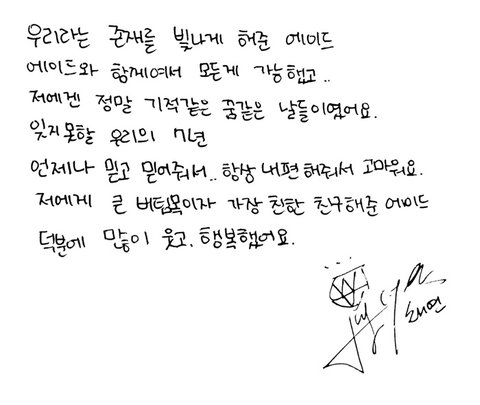 우리라는 존재를 빛나게 해준 에이드
에이드와 함께여서 모든게 가능했고..
저에겐 정말 기적같은 꿈같은 날들이였어요.
잊지못할 우리의 7년
언제나 믿고 믿어줘서.. 항상 내편 해줘서 고마워요.
저에게 큰 버팀목이자 가장 친한 친구해준 에이드
덕분에 많이 웃고, 행복했어요.